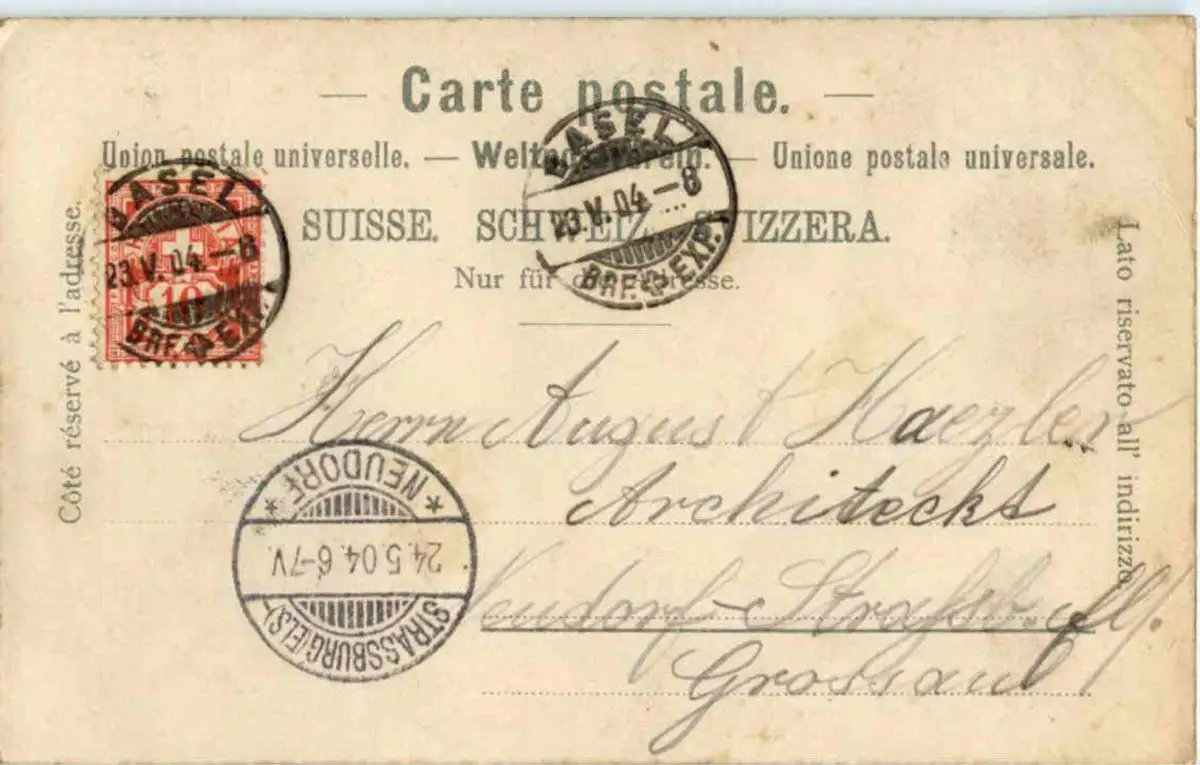 — Carte postale. —
Union postale universelle. — Weltpostverein. — Unione postale universale.
SUISSE. SCHWEIZ. SVIZZERA.
Nur für die Adresse.
Côté réservé à l'adresse.
Lato riservato all' indirizzo
BASEL
23.V.04.–8
BRF. EXP.
10
BASEL
23.V.04.–8
BRF. EXP.
Herrn August
Architeckt
Neudorf-Strassb.
STRASSBURG (ELS)
24.5.04.6-7V.
* NEUDORF *